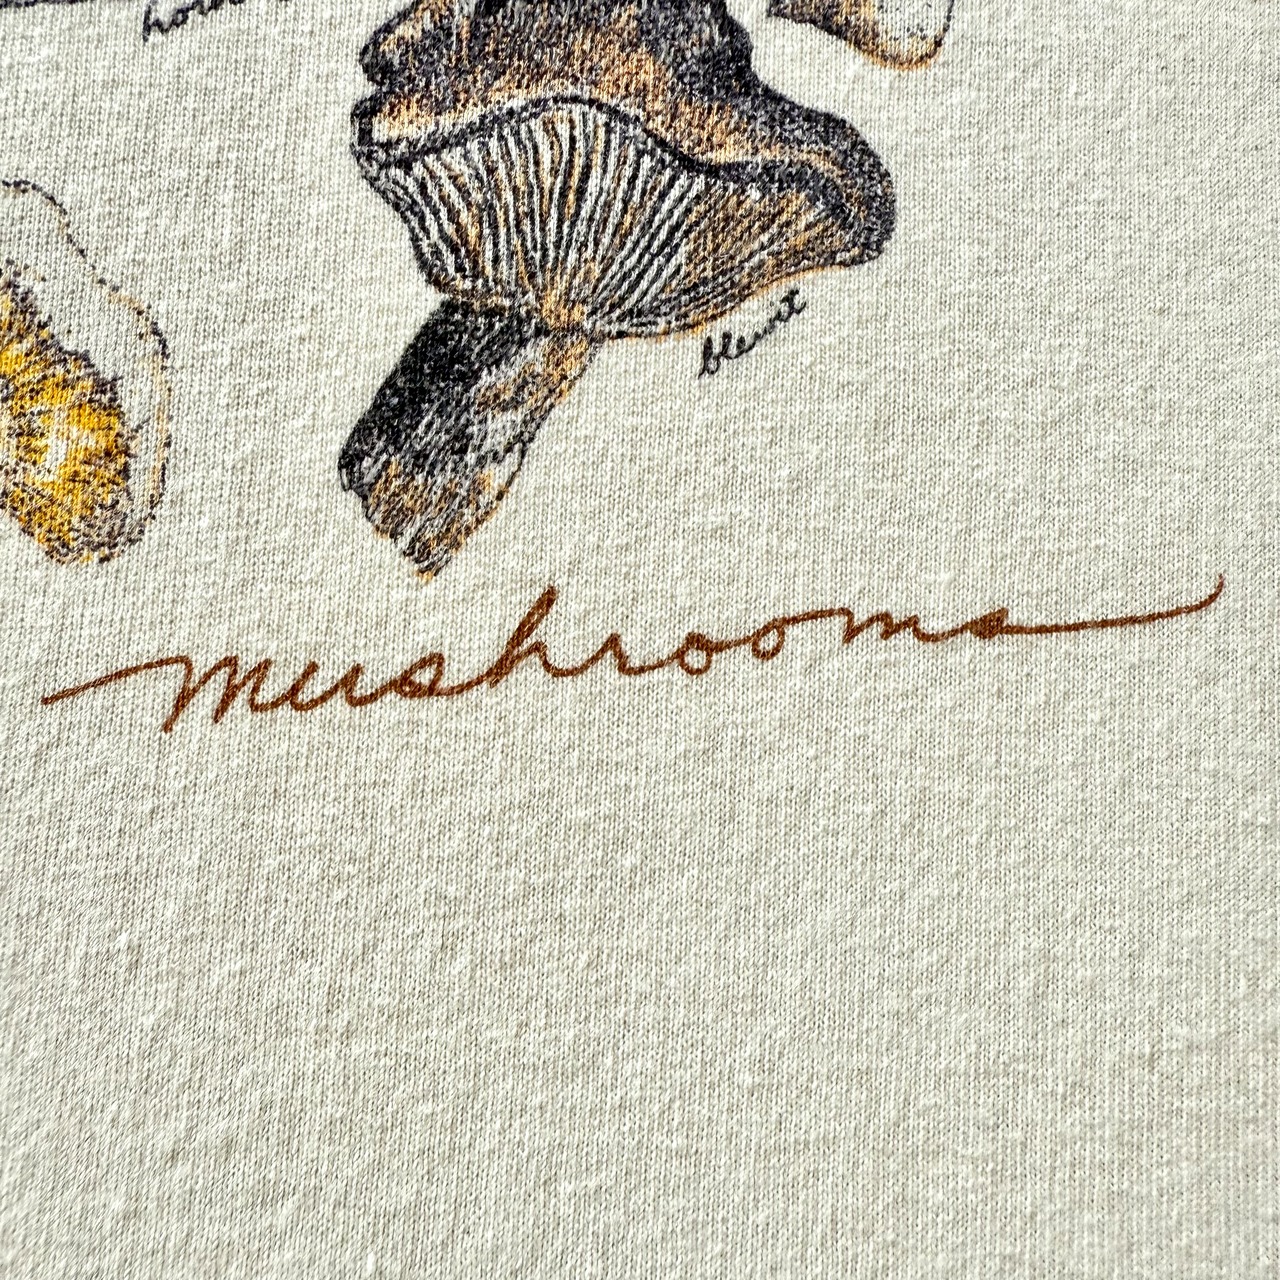 blewit
mushrooms